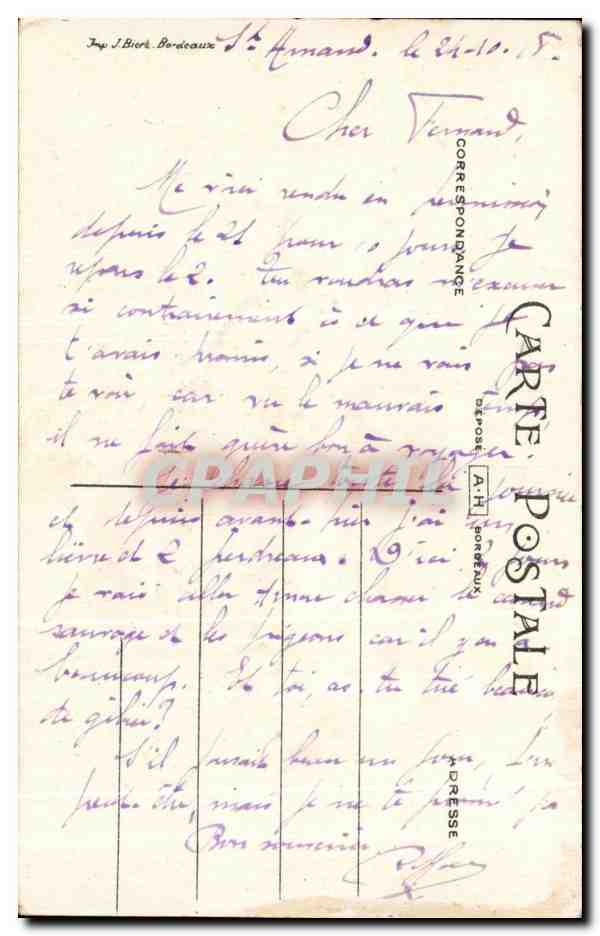 Imp J. Bière. Bordeaux St Amand. le 24-10. 
Cher Fernand,
Me voici rendu en permission
depuis le 21 pour 10 jours. Je
repars le 2. Tu voudras m'excuser
si contrairement à ce que je
t'avais promis, si je ne vais pas
te voir, car vu le mauvais temps
il ne fait guère bon à voyager.
toute la journée
et depuis avant-hier j'ai un
lièvre et 2 perdreaux. D'ici 2 jours
je vais aller chasser le canard
sauvage et les pigeons car il y en a
beaucoup. Et toi, as-tu tué beaucoup
de gibier?
S'il faisait beau un jour,
peut-être, mais je ne te promets pas
Bon souvenir
CORRESPONDANCE
ADRESSE
DÉPOSÉ A.H BORDEAUX
CARTE POSTALE
CPAPHIL